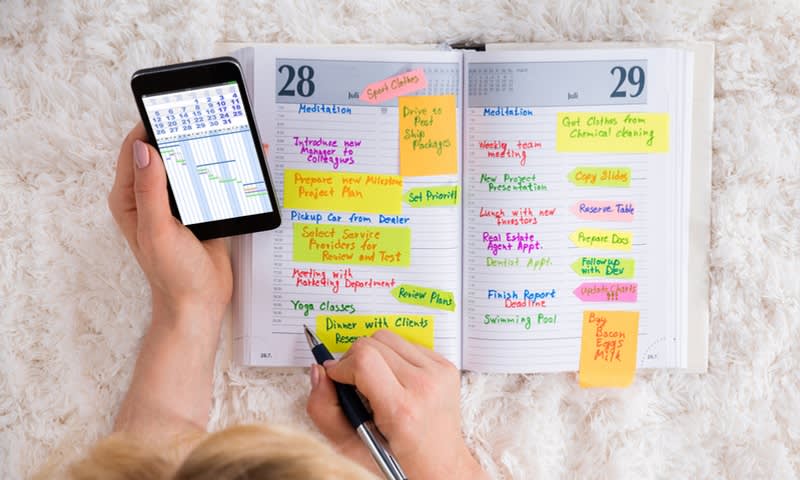 1 2 3 4
5 6 7 8 9 10 11
12 13 14 15 16 17 18
19 20 21 22 23 24 25
26 27 28 29 30 31
28
Juli
Sport Clothes
Meditation
Drive to
Post
Ship
Packages
Introduce new
Manager to
Colleagues
Prepare new Milestone
Project Plan
Set Priorit
Pickup Car from Dealer
Select Service
Providers for
Review and Test
Meeting with
Marketing Department
Review Plans
Yoga Classes
Dinner with Clients
Reser
28.7.
29
Juli
Meditation
Get Clothes from
Chemical cleaning
Weekly team
meeting
New Project
Presentation
Copy Slides
Lunch with new
Investors
Reserve Table
Real Estate
Agent Appt.
Prepare Docs
Dentist Appt.
Followup
with Dev
Update Charts
!!!
Finish Report
Deadline
Swimming Pool
Buy
Bacon
Eggs
Milk
29.7.